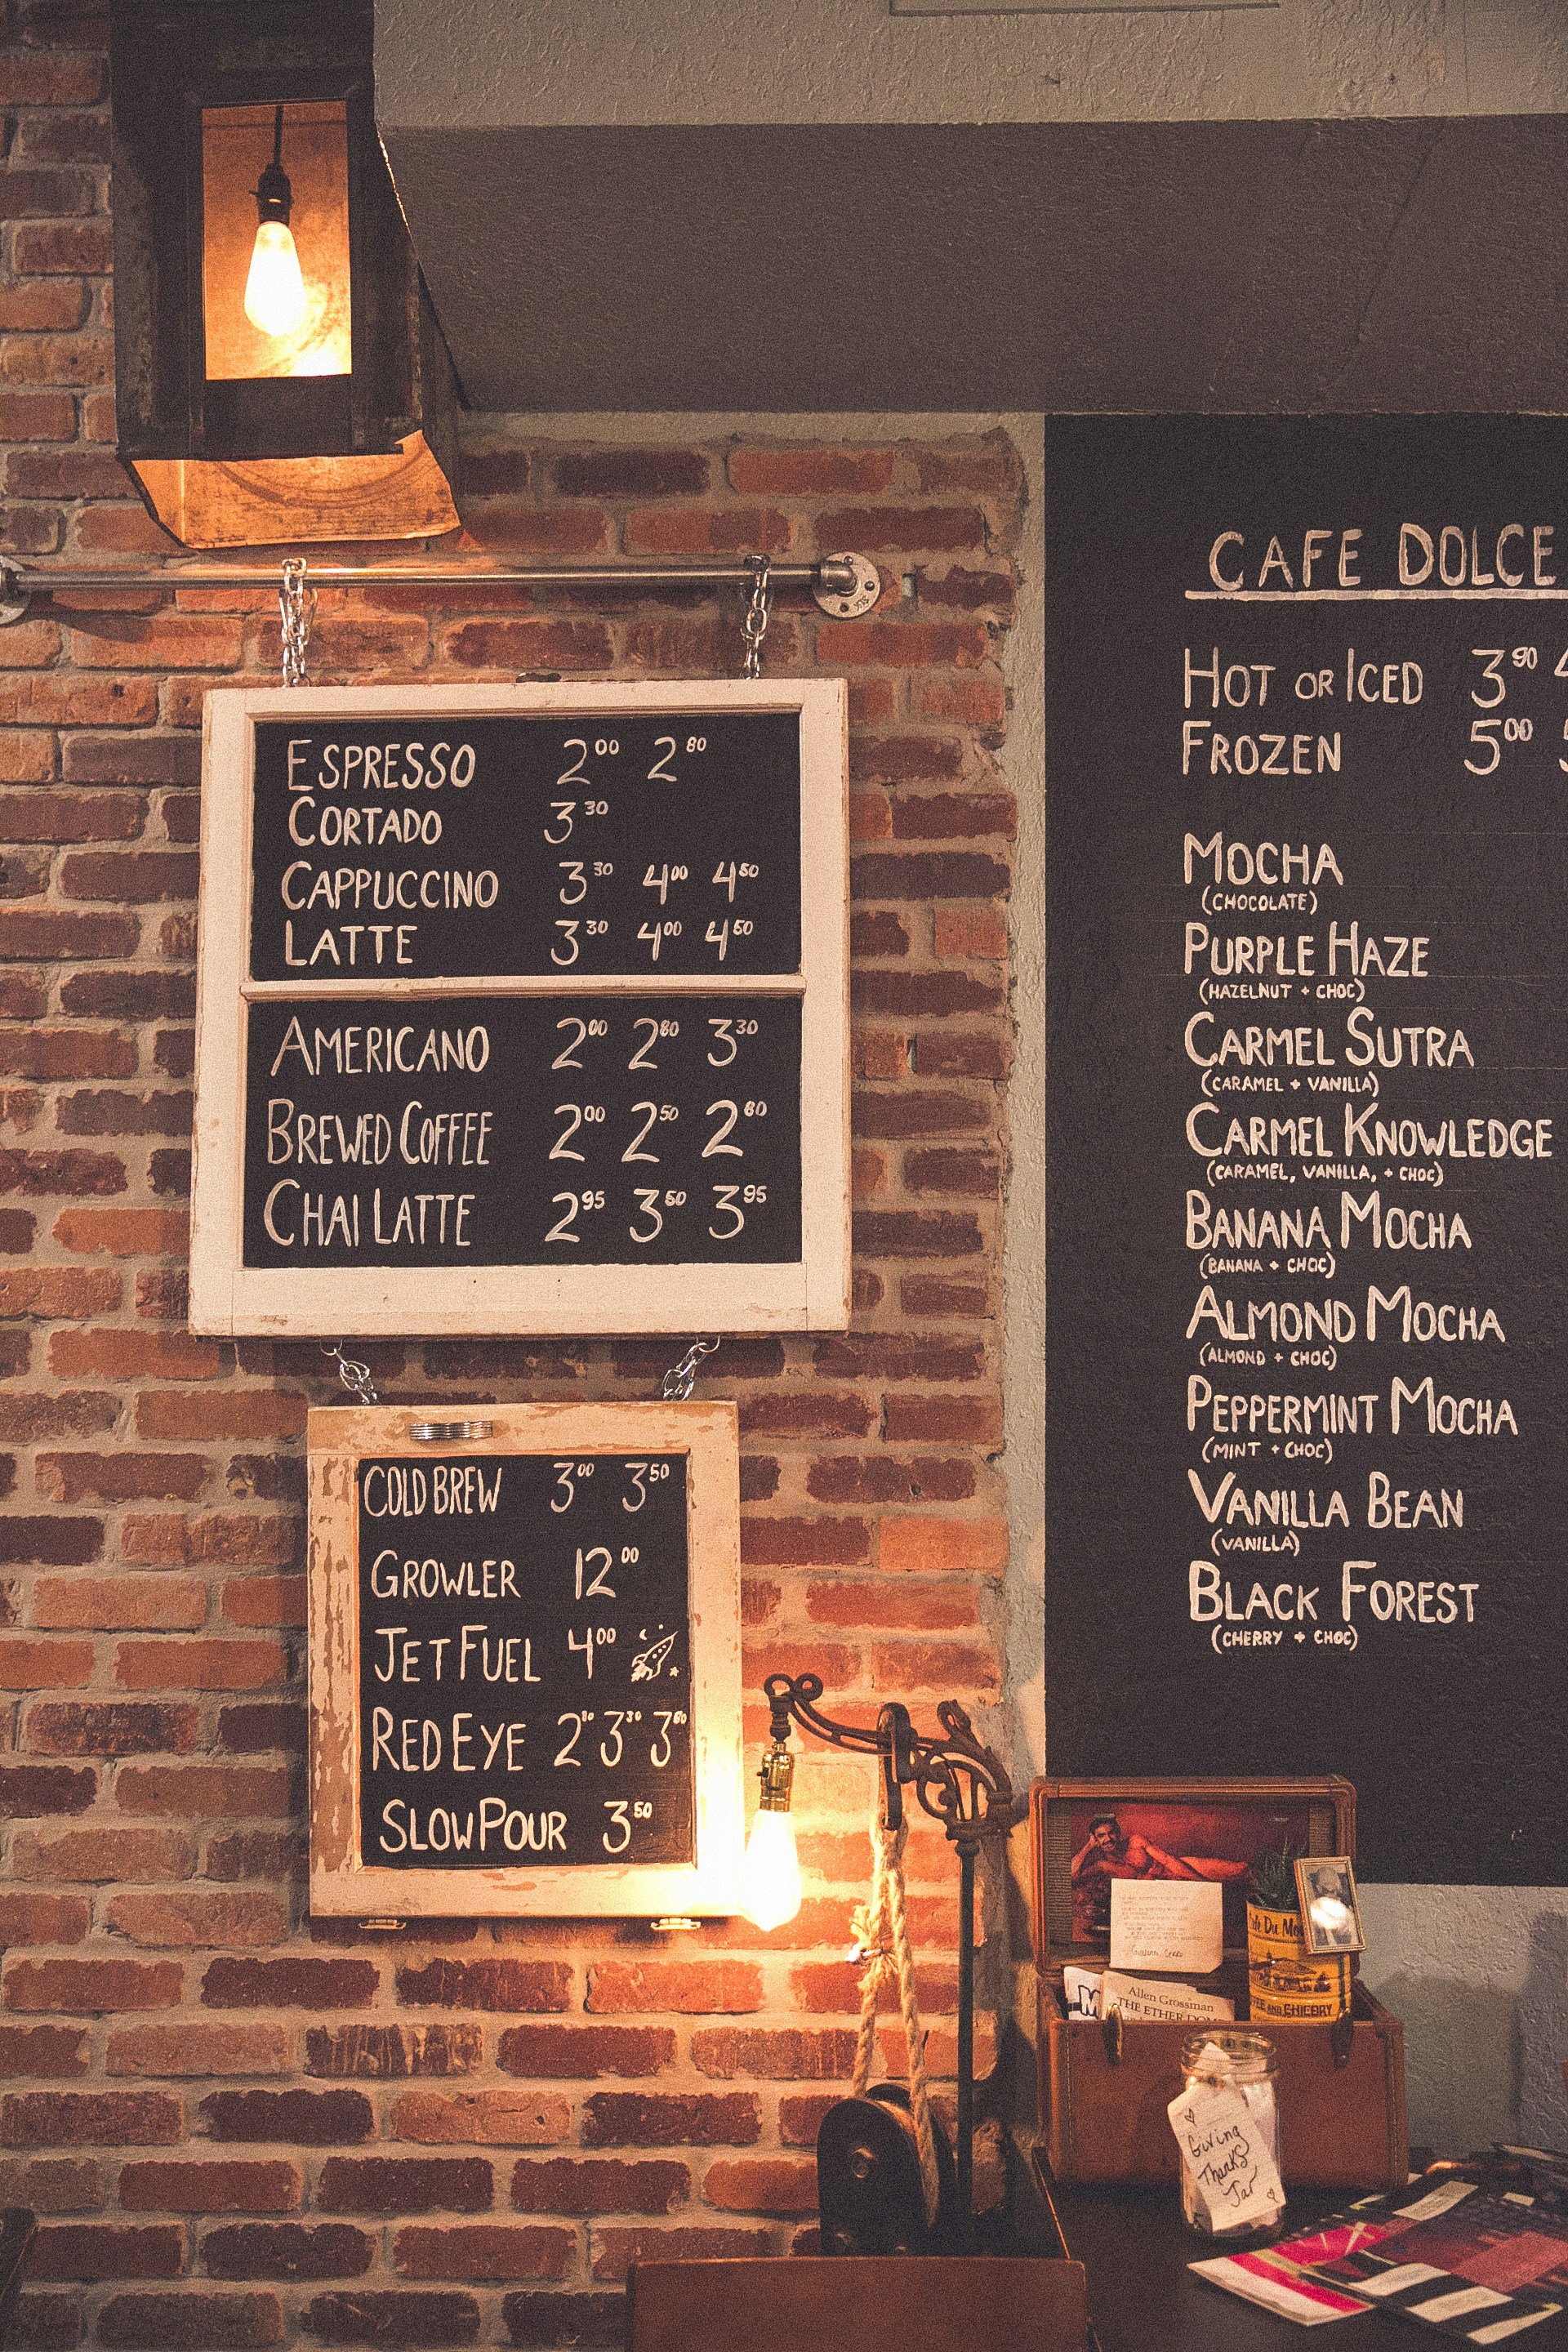 ESPRESSO 2⁰⁰ 2⁸⁰
CORTADO 3³⁰
CAPPUCCINO 3³⁰ 4⁰⁰ 4⁵⁰
LATTE 3³⁰ 4⁰⁰ 4⁵⁰
AMERICANO 2⁰⁰ 2⁸⁰ 3³⁰
BREWED COFFEE 2⁰⁰ 2⁵⁰ 2⁸⁰
CHAI LATTE 2⁹⁵ 3⁵⁰ 3⁹⁵
COLD BREW 3⁰⁰ 3⁵⁰
GROWLER 12⁰⁰
JET FUEL 4⁰⁰
RED EYE 2⁸⁰ 3³⁰ 3⁸⁰
SLOW POUR 3⁵⁰
CAFE DOLCE
HOT OR ICED 3⁹⁰
FROZEN 5⁰⁰
MOCHA
(CHOCOLATE)
PURPLE HAZE
(HAZELNUT + CHOC)
CARMEL SUTRA
(CARAMEL + VANILLA)
CARMEL KNOWLEDGE
(CARAMEL, VANILLA, + CHOC)
BANANA MOCHA
(BANANA + CHOC)
ALMOND MOCHA
(ALMOND + CHOC)
PEPPERMINT MOCHA
(MINT + CHOC)
VANILLA BEAN
(VANILLA)
BLACK FOREST
(CHERRY + CHOC)
Du
AND CHICORY
Allen Grossman
THE ETHER
Giving
Thanks
Jar